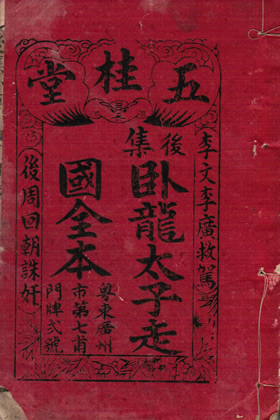 五桂堂
李文李廣救駕
後集
臥龍太子走
國全本
粵東廣州
市第七甫
門牌弍號
後周回朝誅奸